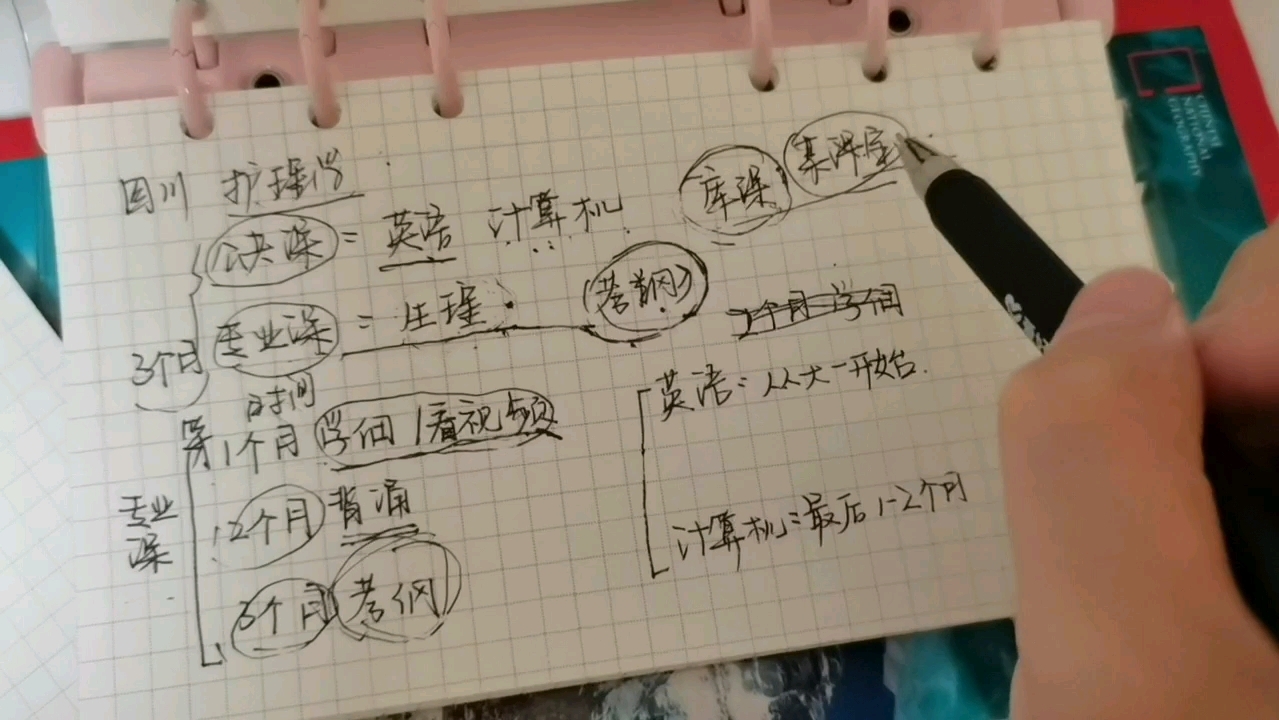 四川 护理学
公共课 = 英语 计算机
库课 某课室
专业课 = 生理
考纲
3个月
时间
1个月 学姐
第1个月 学姐 看视频
英语: 从大一开始
专业课
2个月 背诵
计算机: 最后1-2个月
3个月 考纲
CHINESE
NATIONAL
GEOGRAPHY